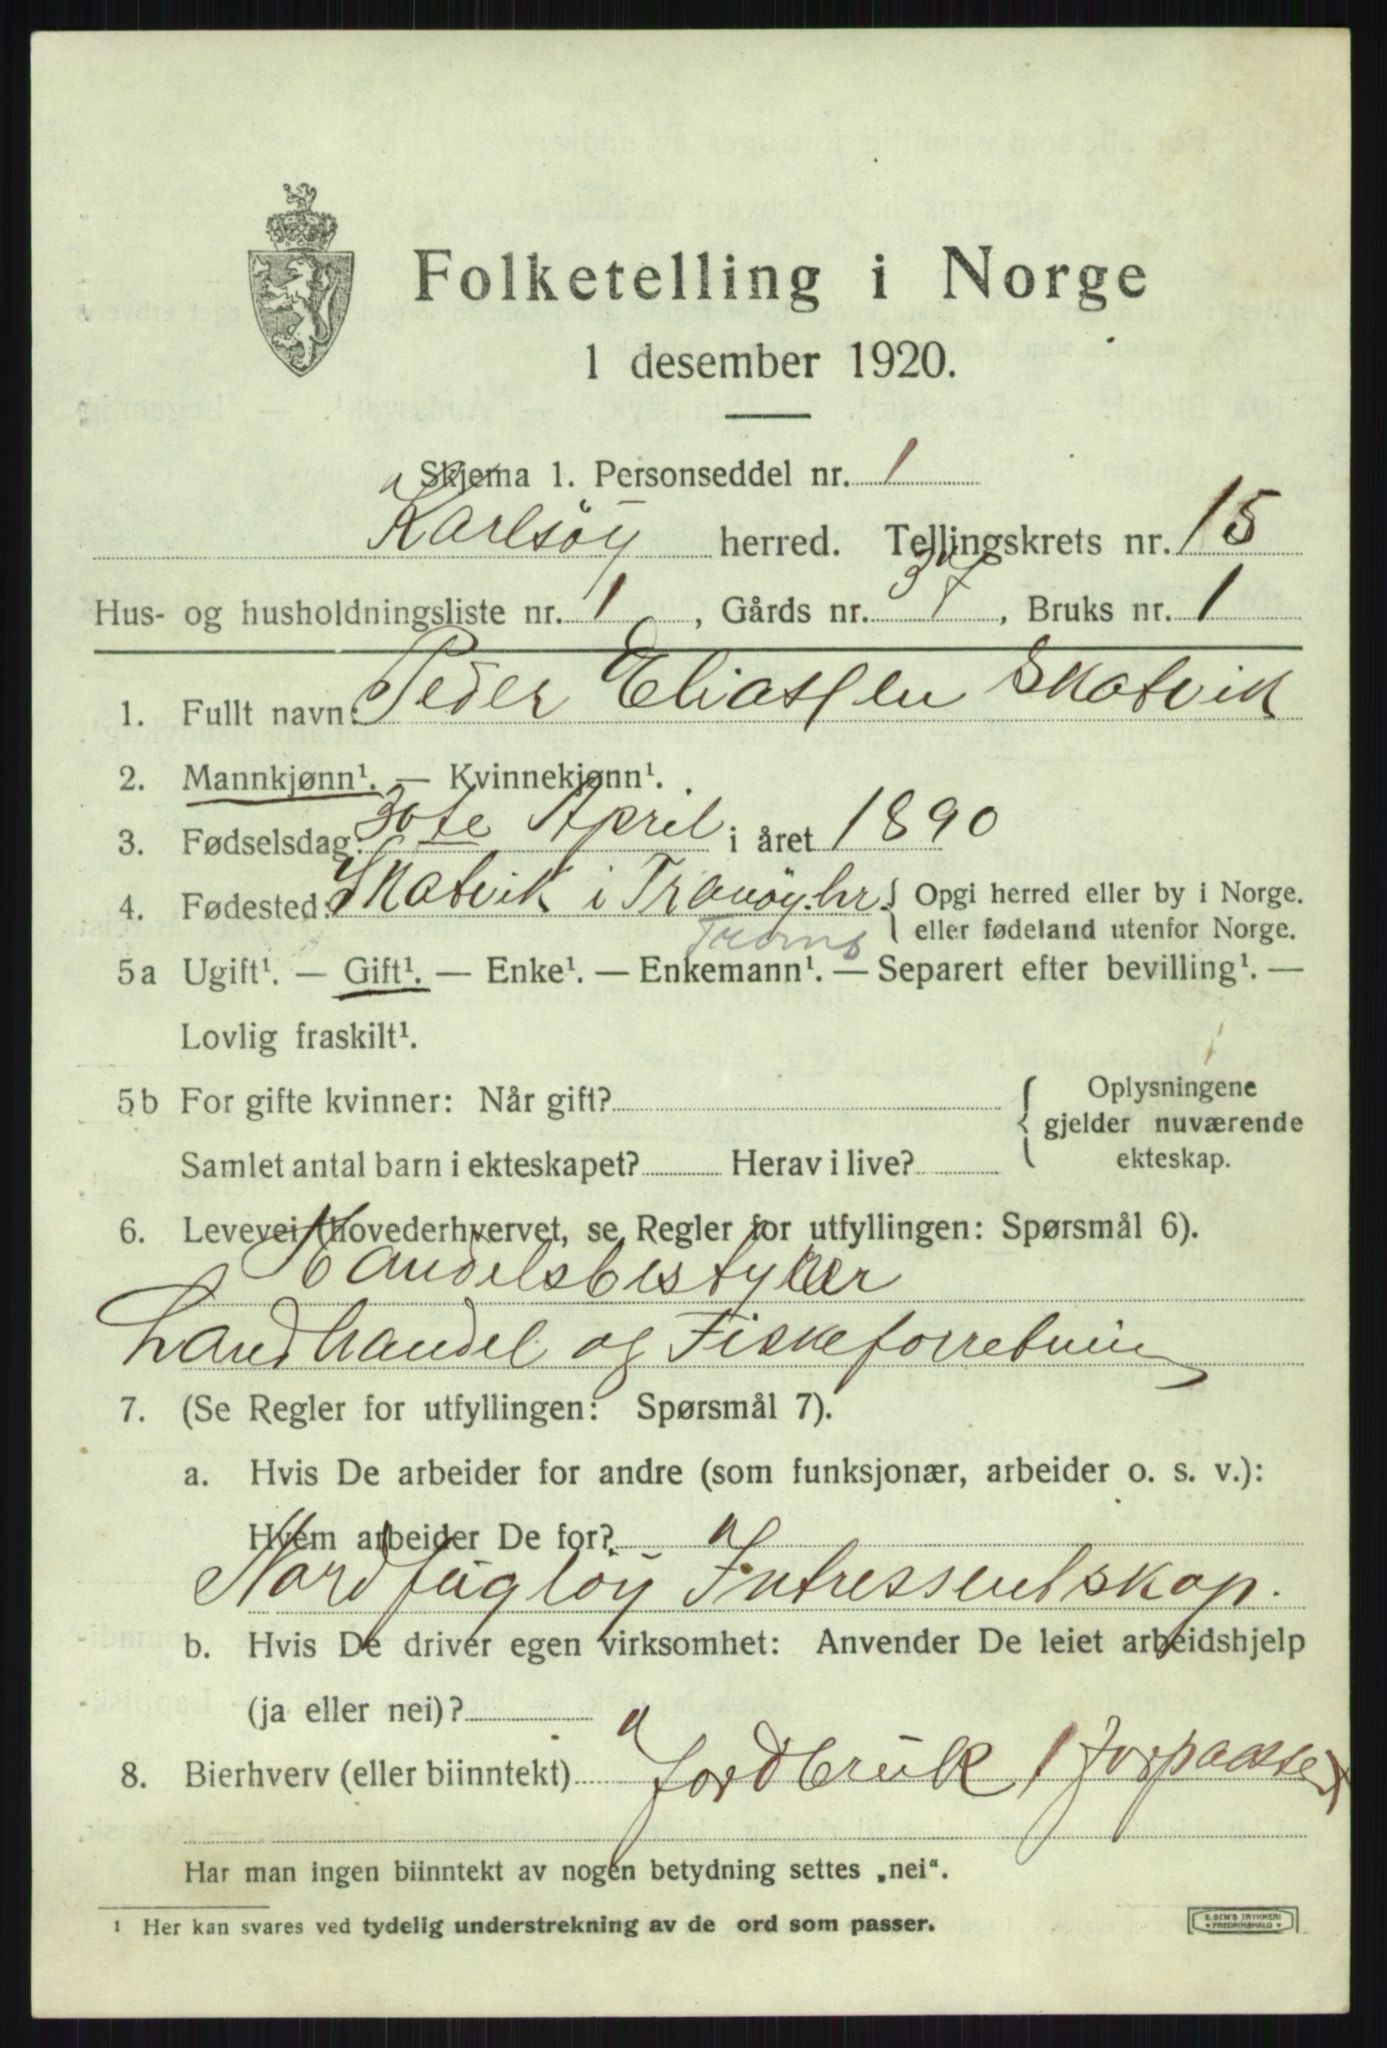 Folketelling i Norge
1 desember 1920.
Skjema 1. Personseddel nr. 1
Karlsöy herred. Tellingskrets nr. 15
Hus- og husholdningsliste nr. 1, Gårds nr. 37, Bruks nr. 1
1. Fullt navn: Peder Eliassen Skatvik
2. Mannkjønn¹. — Kvinnekjønn¹.
3. Fødselsdag: 30te April i året 1890
4. Fødested: Skatvik i Tranöy hr. { Opgi herred eller by i Norge.
Troms eller fødeland utenfor Norge.
5a Ugift¹. — Gift¹. — Enke¹. — Enkemann¹. — Separert efter bevilling¹. —
Lovlig fraskilt¹.
5b For gifte kvinner: Når gift? { Oplysningene
gjelder nuværende
Samlet antal barn i ekteskapet? Herav i live? ekteskap.
6. Levevei (hovederhvervet, se Regler for utfyllingen: Spørsmål 6).
Handelsbestyrer
Landhandel og Fiskeforretning
7. (Se Regler for utfyllingen: Spørsmål 7).
a. Hvis De arbeider for andre (som funksjonær, arbeider o. s. v.):
Hvem arbeider De for?
Nordfugløy Intressentskap.
b. Hvis De driver egen virksomhet: Anvender De leiet arbeidshjelp
(ja eller nei)?
8. Bierhverv (eller biinntekt) Jordbruk (forpagter)
Har man ingen biinntekt av nogen betydning settes „nei“.
¹ Her kan svares ved tydelig understrekning av de ord som passer.
E. SEM'S TRYKKERI
* FREDRIKSHALD *